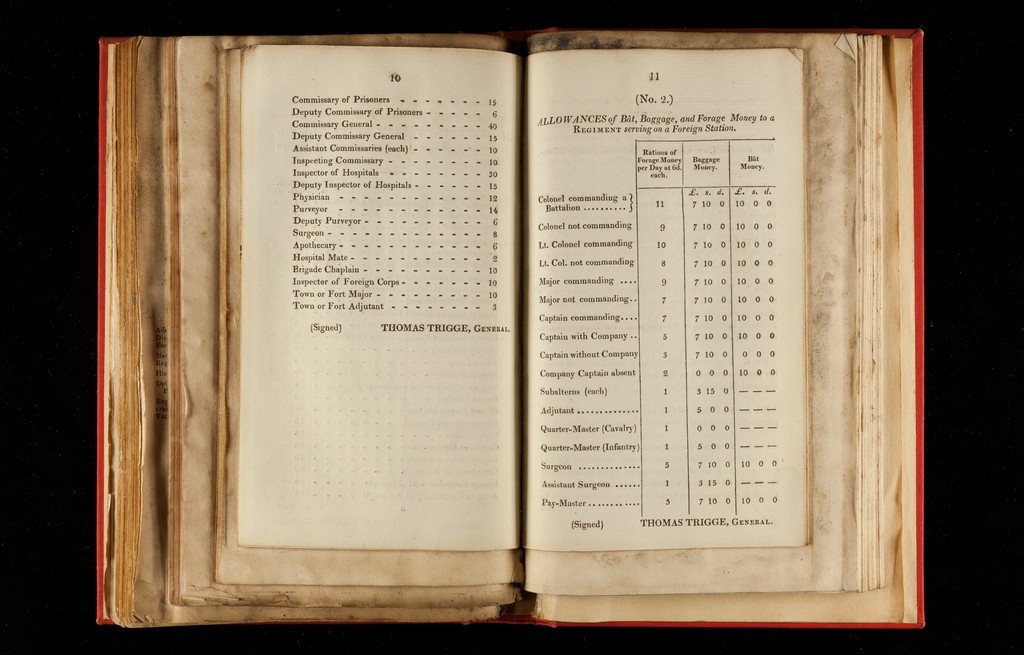 10
Commissary of Prisoners - - - - - - - 15
Deputy Commissary of Prisoners - - - - - 6
Commissary General - - - - - - - - - 40
Deputy Commissary General - - - - - - 15
Assistant Commissaries (each) - - - - - - 10
Inspecting Commissary - - - - - - - - 10
Inspector of Hospitals - - - - - - - - 30
Deputy Inspector of Hospitals - - - - - - 15
Physician - - - - - - - - - - - - 12
Purveyor - - - - - - - - - - - - 14
Deputy Purveyor - - - - - - - - - - 6
Surgeon - - - - - - - - - - - - - 8
Apothecary - - - - - - - - - - - - 6
Hospital Mate - - - - - - - - - - - 2
Brigade Chaplain - - - - - - - - - - 10
Inspector of Foreign Corps - - - - - - - 10
Town or Fort Major - - - - - - - - - 10
Town or Fort Adjutant - - - - - - - - 3
(Signed) THOMAS TRIGGE, GENERAL.
11
(No. 2.)
ALLOWANCES of Bât, Baggage, and Forage Money to a
REGIMENT serving on a Foreign Station.
Rations of Forage Money per Day at 6d. each. Baggage Money. Bât Money.
£. s. d. £. s. d.
Colonel commanding a
Battalion .......... } 11 7 10 0 10 0 0
Colonel not commanding 9 7 10 0 10 0 0
Lt. Colonel commanding 10 7 10 0 10 0 0
Lt. Col. not commanding 8 7 10 0 10 0 0
Major commanding .... 9 7 10 0 10 0 0
Major not commanding.. 7 7 10 0 10 0 0
Captain commanding.... 7 7 10 0 10 0 0
Captain with Company .. 5 7 10 0 10 0 0
Captain without Company 3 7 10 0 0 0 0
Company Captain absent 2 0 0 0 10 0 0
Subalterns (each) 1 3 15 0 — — —
Adjutant .............. 1 5 0 0 — — —
Quarter-Master (Cavalry) 1 0 0 0 — — —
Quarter-Master (Infantry) 1 5 0 0 — — —
Surgeon .............. 5 7 10 0 10 0 0
Assistant Surgeon ...... 1 3 15 0 — — —
Pay-Master ............ 5 7 10 0 10 0 0
(Signed) THOMAS TRIGGE, GENERAL.